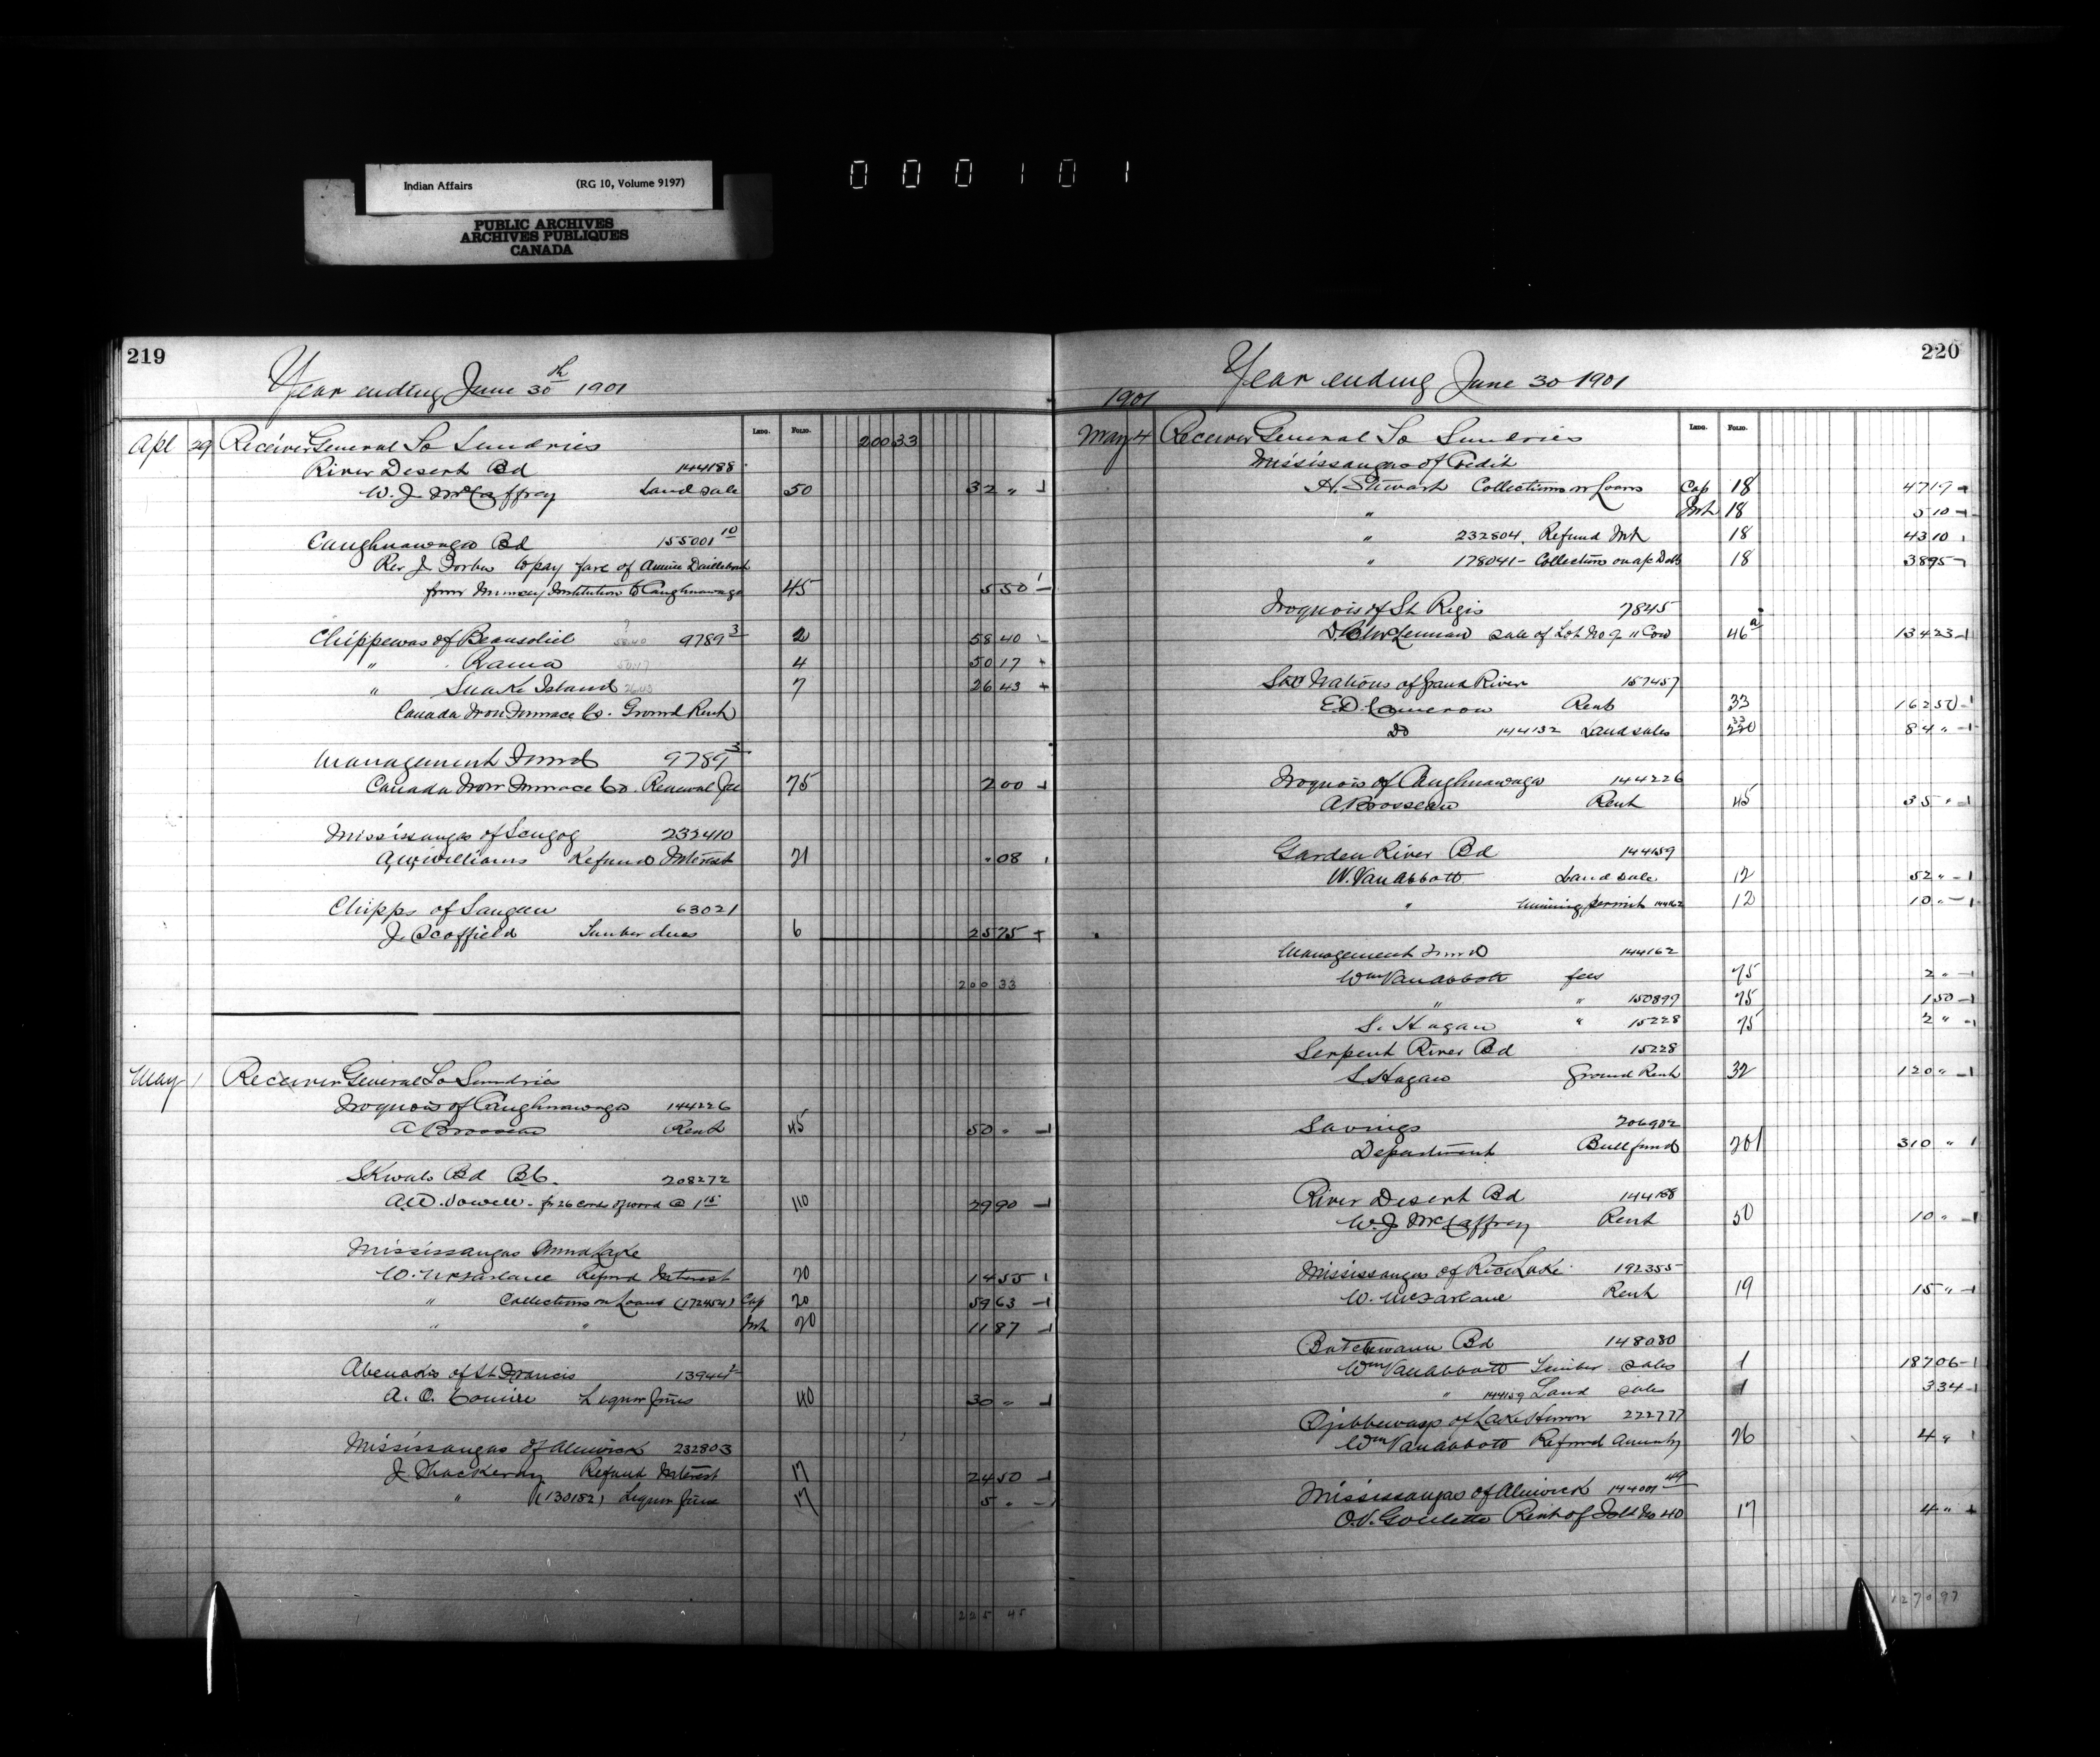 Indian Affairs (RG 10, Volume 9197)
PUBLIC ARCHIVES
ARCHIVES PUBLIQUES
CANADA
000101
219
Year ending June 30th 1901
Ledg. Folio.
Apl 29 Receiver General To Sundries 200 33
River Desert Bd 144188
W. J. McCaffrey Land sale 50 32 "
Caughnawaga Bd 155001 10
Rev J. to pay fare of Annie
from Muncey Institution to Caughnawaga 45 5 50
Chippewas of Beausoliel 58 40 9789 3 2 58 40
" Rama 50 17 4 50 17
" Snake Island 26 43 7 26 43
Canada Iron Furnace Co. Ground Rent
Management Fund 9789 3
Canada Iron Furnace Co. Renewal fee 75 2 00
Mississaugas of Scugog 232410
A. W. Williams Refund Interest 21 . 08
Chipps of Saugeen 63021
J. Scoffield Timber dues 6 25 75
200 33
May 1 Receiver General To Sundries
Iroquois of Caughnawaga 144226
A Brosseau Rent 45 50 "
Skwals Bd BC. 208272
A.W. Vowell - for 26 cords of wood @ 1 15 110 29 90
Mississaugas Mud Lake
W. McFarlane Refund Interest 20 14 55
" Collections on Loans (172454) Cap 20 59 63
" " Int 20 11 87
Abenakis of St Francis 13944 2
A. O. Comire Liquor fines 40 30 "
Mississaugas of Alnwick 232803
J. Thackeray Refund Interest 17 24 50
" (130182) Liquor fine 17 5 "
225 45
220
Year ending June 30 1901
1901
Ledg. Folio.
May 4 Receiver General To Sundries
Mississaugas of Credit
H. Stewart Collections on Loans Cap 18 47 19
" Int 18 5 10
" 232804. Refund Int 18 43 10
" 178041 - Collections on a/c Debts 18 38 95
Iroquois of St Regis 7845
sale of Lot No 9 " Con 46 a 134 23
Six Nations of Grand River 157457
E.D. Cameron Rent 33 162 50
Do 144132 Land sales 33 84 "
Iroquois of Caughnawaga 144226
A Brosseau Rent 45 35 "
Garden River Bd 144159
W. Van Abbott Land sale 12 52 "
" Mining permit 144162 12 10 "
Management Fund 144162
Wm Van Abbott fees 75 2 "
" " 150899 75 1 50
S. Hagan " 15228 75 2 "
Serpent River Bd 15228
S. Hagan Ground Rent 32 120 "
Savings 206902
Department Bull fund 201 310 "
River Desert Bd 144188
W. J. McCaffrey Rent 50 10 "
Mississaugas of Rice Lake 192355
W. McFarlane Rent 19 15 "
Batchewana Bd 148080
Wm Van Abbott Timber sales 1 187 06
" 144159 Land sales 1 3 34
Ojibbewasp of Lake Huron 222777
Wm Van Abbott Refund Annuity 26 4 "
Mississaugas of Alnwick 144001 49
O.V. Goulette Rent of Isld No 40 17 4 "
1270 97